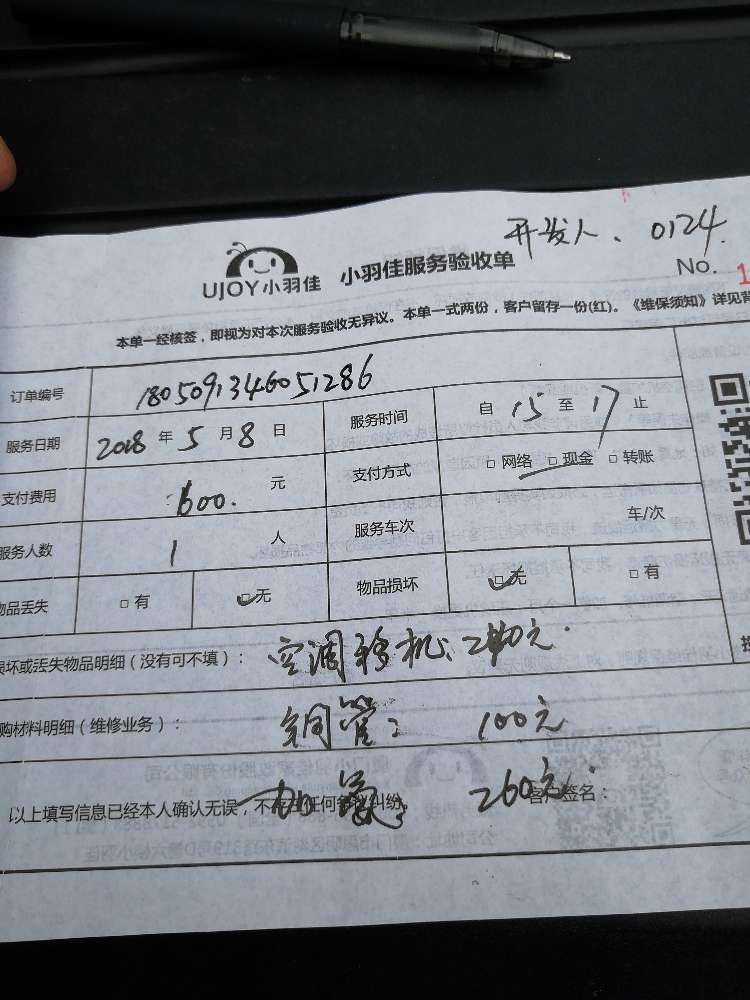 开发人、0124.
UJOY小羽佳 小羽佳服务验收单
No. 1
本单一经核签，即视为对本次服务验收无异议。本单一式两份，客户留存一份(红)。《维保须知》详见背
订单编号 1805091346051286
服务日期 2018 年 5 月 8 日 服务时间 自 15 至 17 止
支付费用 600. 元 支付方式 □网络 □现金 □转账
服务人数 1 人 服务车次 车/次
物品丢失 □有 □无 物品损坏 □无 □有
损坏或丢失物品明细（没有可不填）： 空调移机：240元.
购材料明细（维修业务）： 铜管： 100元
加氟： 260元.
以上填写信息已经本人确认无误，不存在任何争议纠纷。 客户签名：